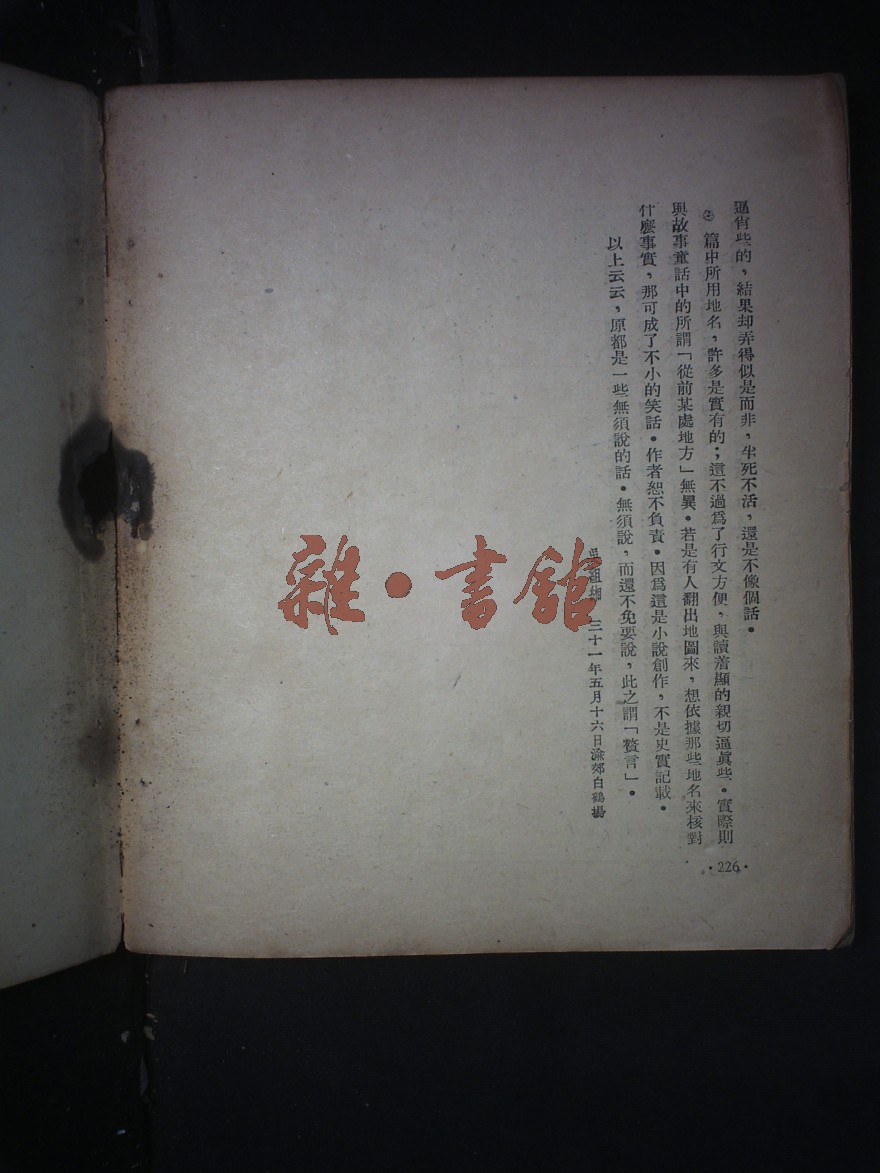 逼肖些的，結果却弄得似是而非，半死不活，還是不像個話。
篇中所用地名，許多是實有的；這不過爲了行文方便，與讀着顯的親切逼眞些。實際則
與故事童話中的所謂「從前某處地方」無異。若是有人翻出地圖來，想依據那些地名來核對
什麽事實，那可成了不小的笑話。作者恕不負責。因爲這是小說創作，不是史實記載。
以上云云，原都是一些無須說的話。無須說，而還不免要說，此之謂「贅言」。
吳組緗 三十一年五月十六日渝郊白鶴場
·226·
雜·書館